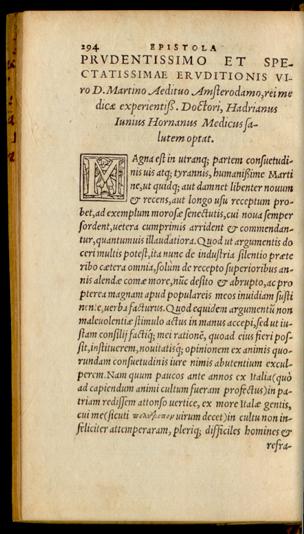 294 EPISTOLA
PRVDENTISSIMO ET SPE-
CTATISSIMAE ERVDITIONIS VI-
ro D. Martino Aedituo Amsterodamo, rei me
dicæ experientiß. Doctori, Hadrianus
Iunius Hornanus Medicus sa-
lutem optat.
MAgna est in utranq; partem consuetudi-
nis uis atq; tyrannis, humanißime Marti
ne, ut quidq; aut damnet libenter nouum
& recens, aut longo usu receptum pro-
bet, ad exemplum morosæ senectutis, cui noua semper
sordent, uetera cumprimis arrident & commendan-
tur, quantumuis illaudatiora. Quod ut argumentis do
ceri multis potest, ita nunc de industria silentio præte
ribo cætera omnia, solum de recepto superioribus an-
nis alendæ comæ more, nūc desito & abrupto, ac pro
pterea magnam apud populareis meos inuidiam susti
nente, uerba facturus. Quod equidem argumentū non
maleuolentiæ stimulo actus in manus accepi, sed ut iu-
stam consilij factiq; mei rationē, quoad eius fieri pos-
sit, instituerem, nouitatisq; opinionem ex animis quo-
rundam consuetudinis iure nimis abutentium excul-
perem. Nam quum paucos ante annos ex Italia (quò
ad capiendum animi cultum fueram profectus) in pa-
triam redissem attonso uertice, ex more Italæ gentis,
cui me (sicuti uirum decet) in cultu non in-
feliciter attemperaram, pleriq; difficiles homines &
refra-